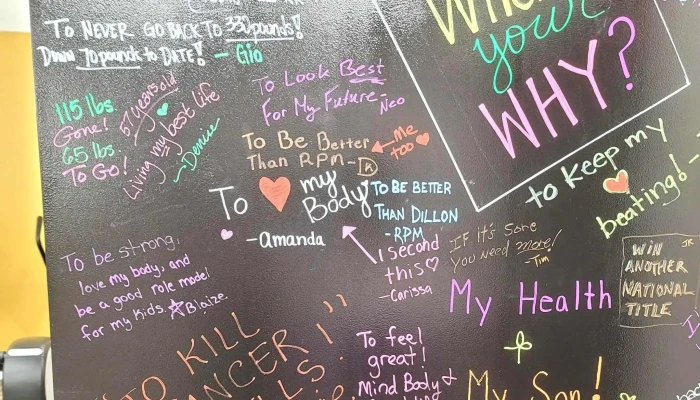 TO NEVER GO BACK TO 330 pounds!
Down 70 pounds to DATE! - Gio
your
WHY?
To Look Best
For My Future - Neo
115 lbs.
Gone!
65 lbs.
To Go!
57 years old
Living my best life
- Denise
To Be Better
Than RPM -
Me
too
to keep my
beating! -
To my
Body
- Amanda
TO BE BETTER
THAN DILLON
- RPM
I second
this
- Carissa
IF it's Sore
You need more!
- Tim
WIN
ANOTHER
NATIONAL
TITLE
JR
To be strong,
love my body, and
be a good role model
for my kids. Blaize
My Health
"TO KILL
CANCER
!"
To feel
great!
Mind Body &
My Son!